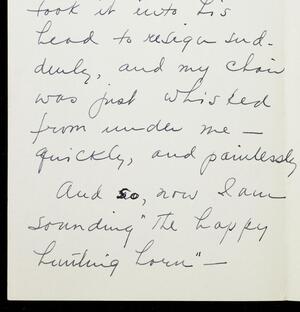 took it into his
head to resign sud-
denly, and my chair
was just whisked
from under me —
quickly, and painlessly
And so, now I am
sounding "the happy
hunting horn" —